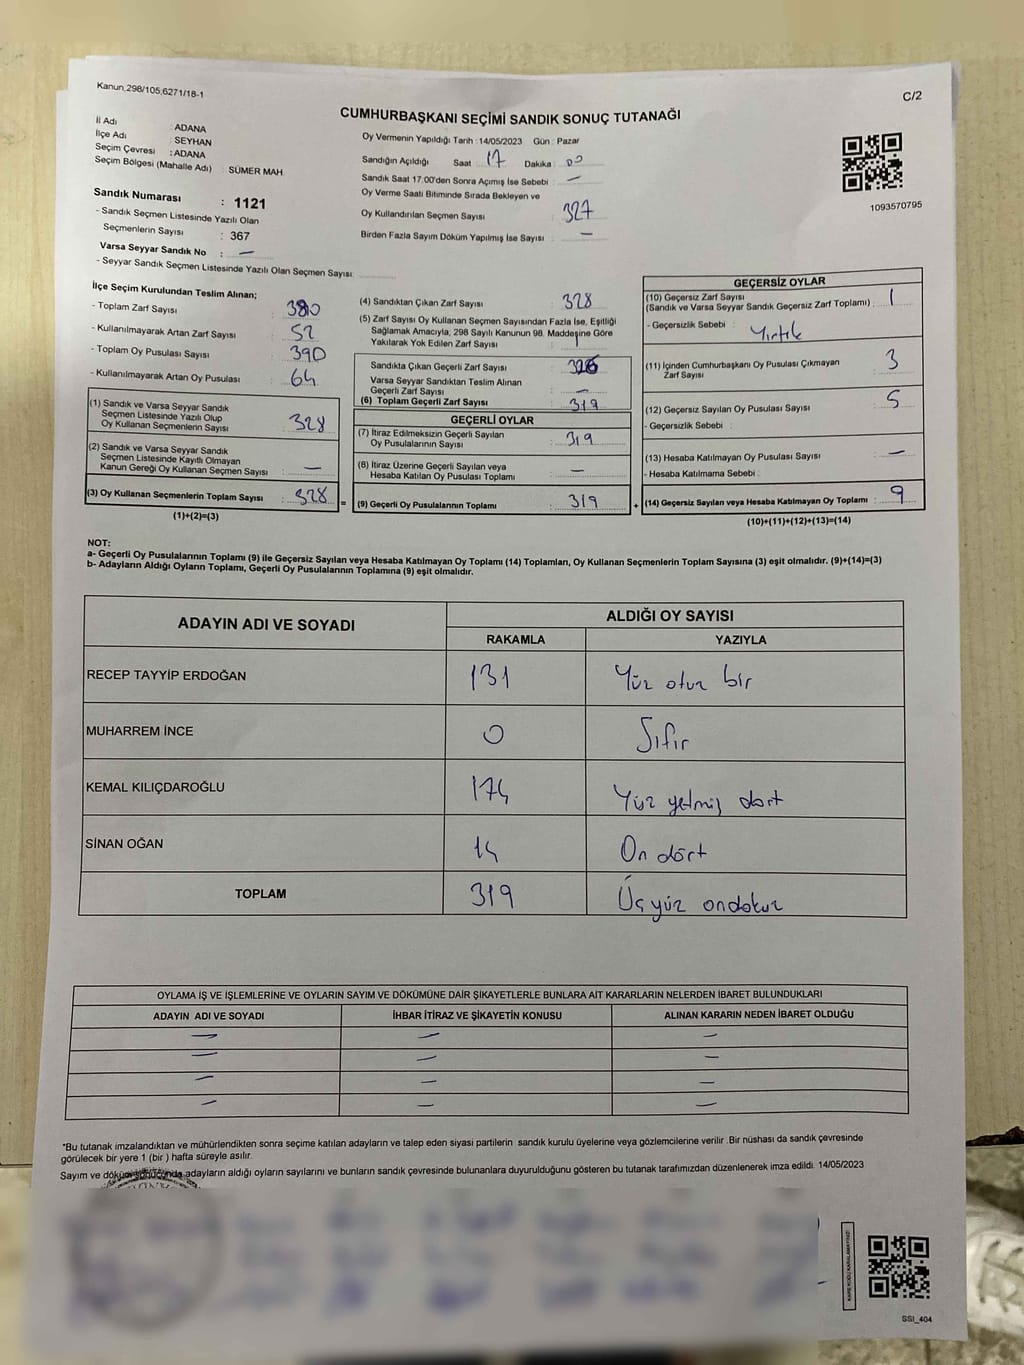 Kanun,298/105,6271/18-1
C/2
CUMHURBAŞKANI SEÇİMİ SANDIK SONUÇ TUTANAĞI
İl Adı : ADANA
İlçe Adı : SEYHAN
Seçim Çevresi : ADANA
Seçim Bölgesi (Mahalle Adı) : SÜMER MAH.
Sandık Numarası : 1121
- Sandık Seçmen Listesinde Yazılı Olan
Seçmenlerin Sayısı : 367
Varsa Seyyar Sandık No : —
- Seyyar Sandık Seçmen Listesinde Yazılı Olan Seçmen Sayısı:
Oy Vermenin Yapıldığı Tarih : 14/05/2023 Gün : Pazar
Sandığın Açıldığı Saat : 17 Dakika : 00
Sandık Saat 17.00'den Sonra Açımış İse Sebebi : —
Oy Verme Saati Bitiminde Sırada Bekleyen ve
Oy Kullandırılan Seçmen Sayısı : 327
Birden Fazla Sayım Döküm Yapılmış İse Sayısı : —
1093570795
İlçe Seçim Kurulundan Teslim Alınan;
- Toplam Zarf Sayısı : 380
- Kullanılmayarak Artan Zarf Sayısı : 52
- Toplam Oy Pusulası Sayısı : 390
- Kullanılmayarak Artan Oy Pusulası : 64
(1) Sandık ve Varsa Seyyar Sandık
Seçmen Listesinde Yazılı Olup
Oy Kullanan Seçmenlerin Sayısı : 328
(2) Sandık ve Varsa Seyyar Sandık
Seçmen Listesinde Kayıtlı Olmayan
Kanun Gereği Oy Kullanan Seçmen Sayısı : —
(3) Oy Kullanan Seçmenlerin Toplam Sayısı : 328
(1)+(2)=(3)
(4) Sandıktan Çıkan Zarf Sayısı : 328
(5) Zarf Sayısı Oy Kullanan Seçmen Sayısından Fazla İse, Eşitliği
Sağlamak Amacıyla, 298 Sayılı Kanunun 98. Maddesine Göre
Yakılarak Yok Edilen Zarf Sayısı :
Sandıkta Çıkan Geçerli Zarf Sayısı :
Varsa Seyyar Sandıktan Teslim Alınan
Geçerli Zarf Sayısı : —
(6) Toplam Geçerli Zarf Sayısı : 319
GEÇERLİ OYLAR
(7) İtiraz Edilmeksizin Geçerli Sayılan
Oy Pusulalarının Sayısı : 319
(8) İtiraz Üzerine Geçerli Sayılan veya
Hesaba Katılan Oy Pusulası Toplamı : —
= (9) Geçerli Oy Pusulalarının Toplamı : 319
GEÇERSİZ OYLAR
(10) Geçersiz Zarf Sayısı
(Sandık ve Varsa Seyyar Sandık Geçersiz Zarf Toplamı) : 1
- Geçersizlik Sebebi : Yırtık
(11) İçinden Cumhurbaşkanı Oy Pusulası Çıkmayan
Zarf Sayısı : 3
(12) Geçersiz Sayılan Oy Pusulası Sayısı : 5
- Geçersizlik Sebebi :
(13) Hesaba Katılmayan Oy Pusulası Sayısı : —
- Hesaba Katılmama Sebebi :
+ (14) Geçersiz Sayılan veya Hesaba Katılmayan Oy Toplamı : 9
(10)+(11)+(12)+(13)=(14)
NOT:
a- Geçerli Oy Pusulalarının Toplamı (9) ile Geçersiz Sayılan veya Hesaba Katılmayan Oy Toplamı (14) Toplamları, Oy Kullanan Seçmenlerin Toplam Sayısına (3) eşit olmalıdır. (9)+(14)=(3)
b- Adayların Aldığı Oyların Toplamı, Geçerli Oy Pusulalarının Toplamına (9) eşit olmalıdır.
ADAYIN ADI VE SOYADI
ALDIĞI OY SAYISI
RAKAMLA YAZIYLA
RECEP TAYYİP ERDOĞAN 131 Yüz otuz bir
MUHARREM İNCE 0 Sıfır
KEMAL KILIÇDAROĞLU 174 Yüz yetmiş dört
SİNAN OĞAN 14 On dört
TOPLAM 319 Üçyüz ondokuz
OYLAMA İŞ VE İŞLEMLERİNE VE OYLARIN SAYIM VE DÖKÜMÜNE DAİR ŞİKAYETLERLE BUNLARA AİT KARARLARIN NELERDEN İBARET BULUNDUKLARI
ADAYIN ADI VE SOYADI İHBAR İTİRAZ VE ŞİKAYETİN KONUSU ALINAN KARARIN NEDEN İBARET OLDUĞU
— — —
— — —
— — —
— — —
*Bu tutanak imzalandıktan ve mühürlendikten sonra seçime katılan adayların ve talep eden siyasi partilerin sandık kurulu üyelerine veya gözlemcilerine verilir .Bir nüshası da sandık çevresinde
görülecek bir yere 1 (bir ) hafta süreyle asılır.
Sayım ve döküm sonucunda adayların aldığı oyların sayılarını ve bunların sandık çevresinde bulunanlara duyurulduğunu gösteren bu tutanak tarafımızdan düzenlenerek imza edildi. 14/05/2023
KARE KODU KARALAMAYINIZ!
SSI_404